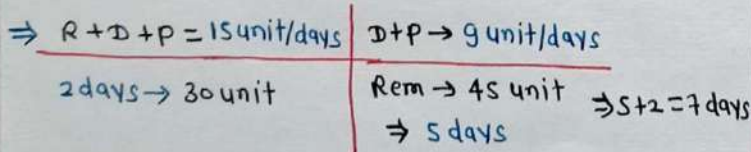 ⇒ R+D+P = 15 unit/days
D+P → 9 unit/days
2 days → 30 unit
Rem → 45 unit
⇒ 5 days
⇒ 5+2 = 7 days